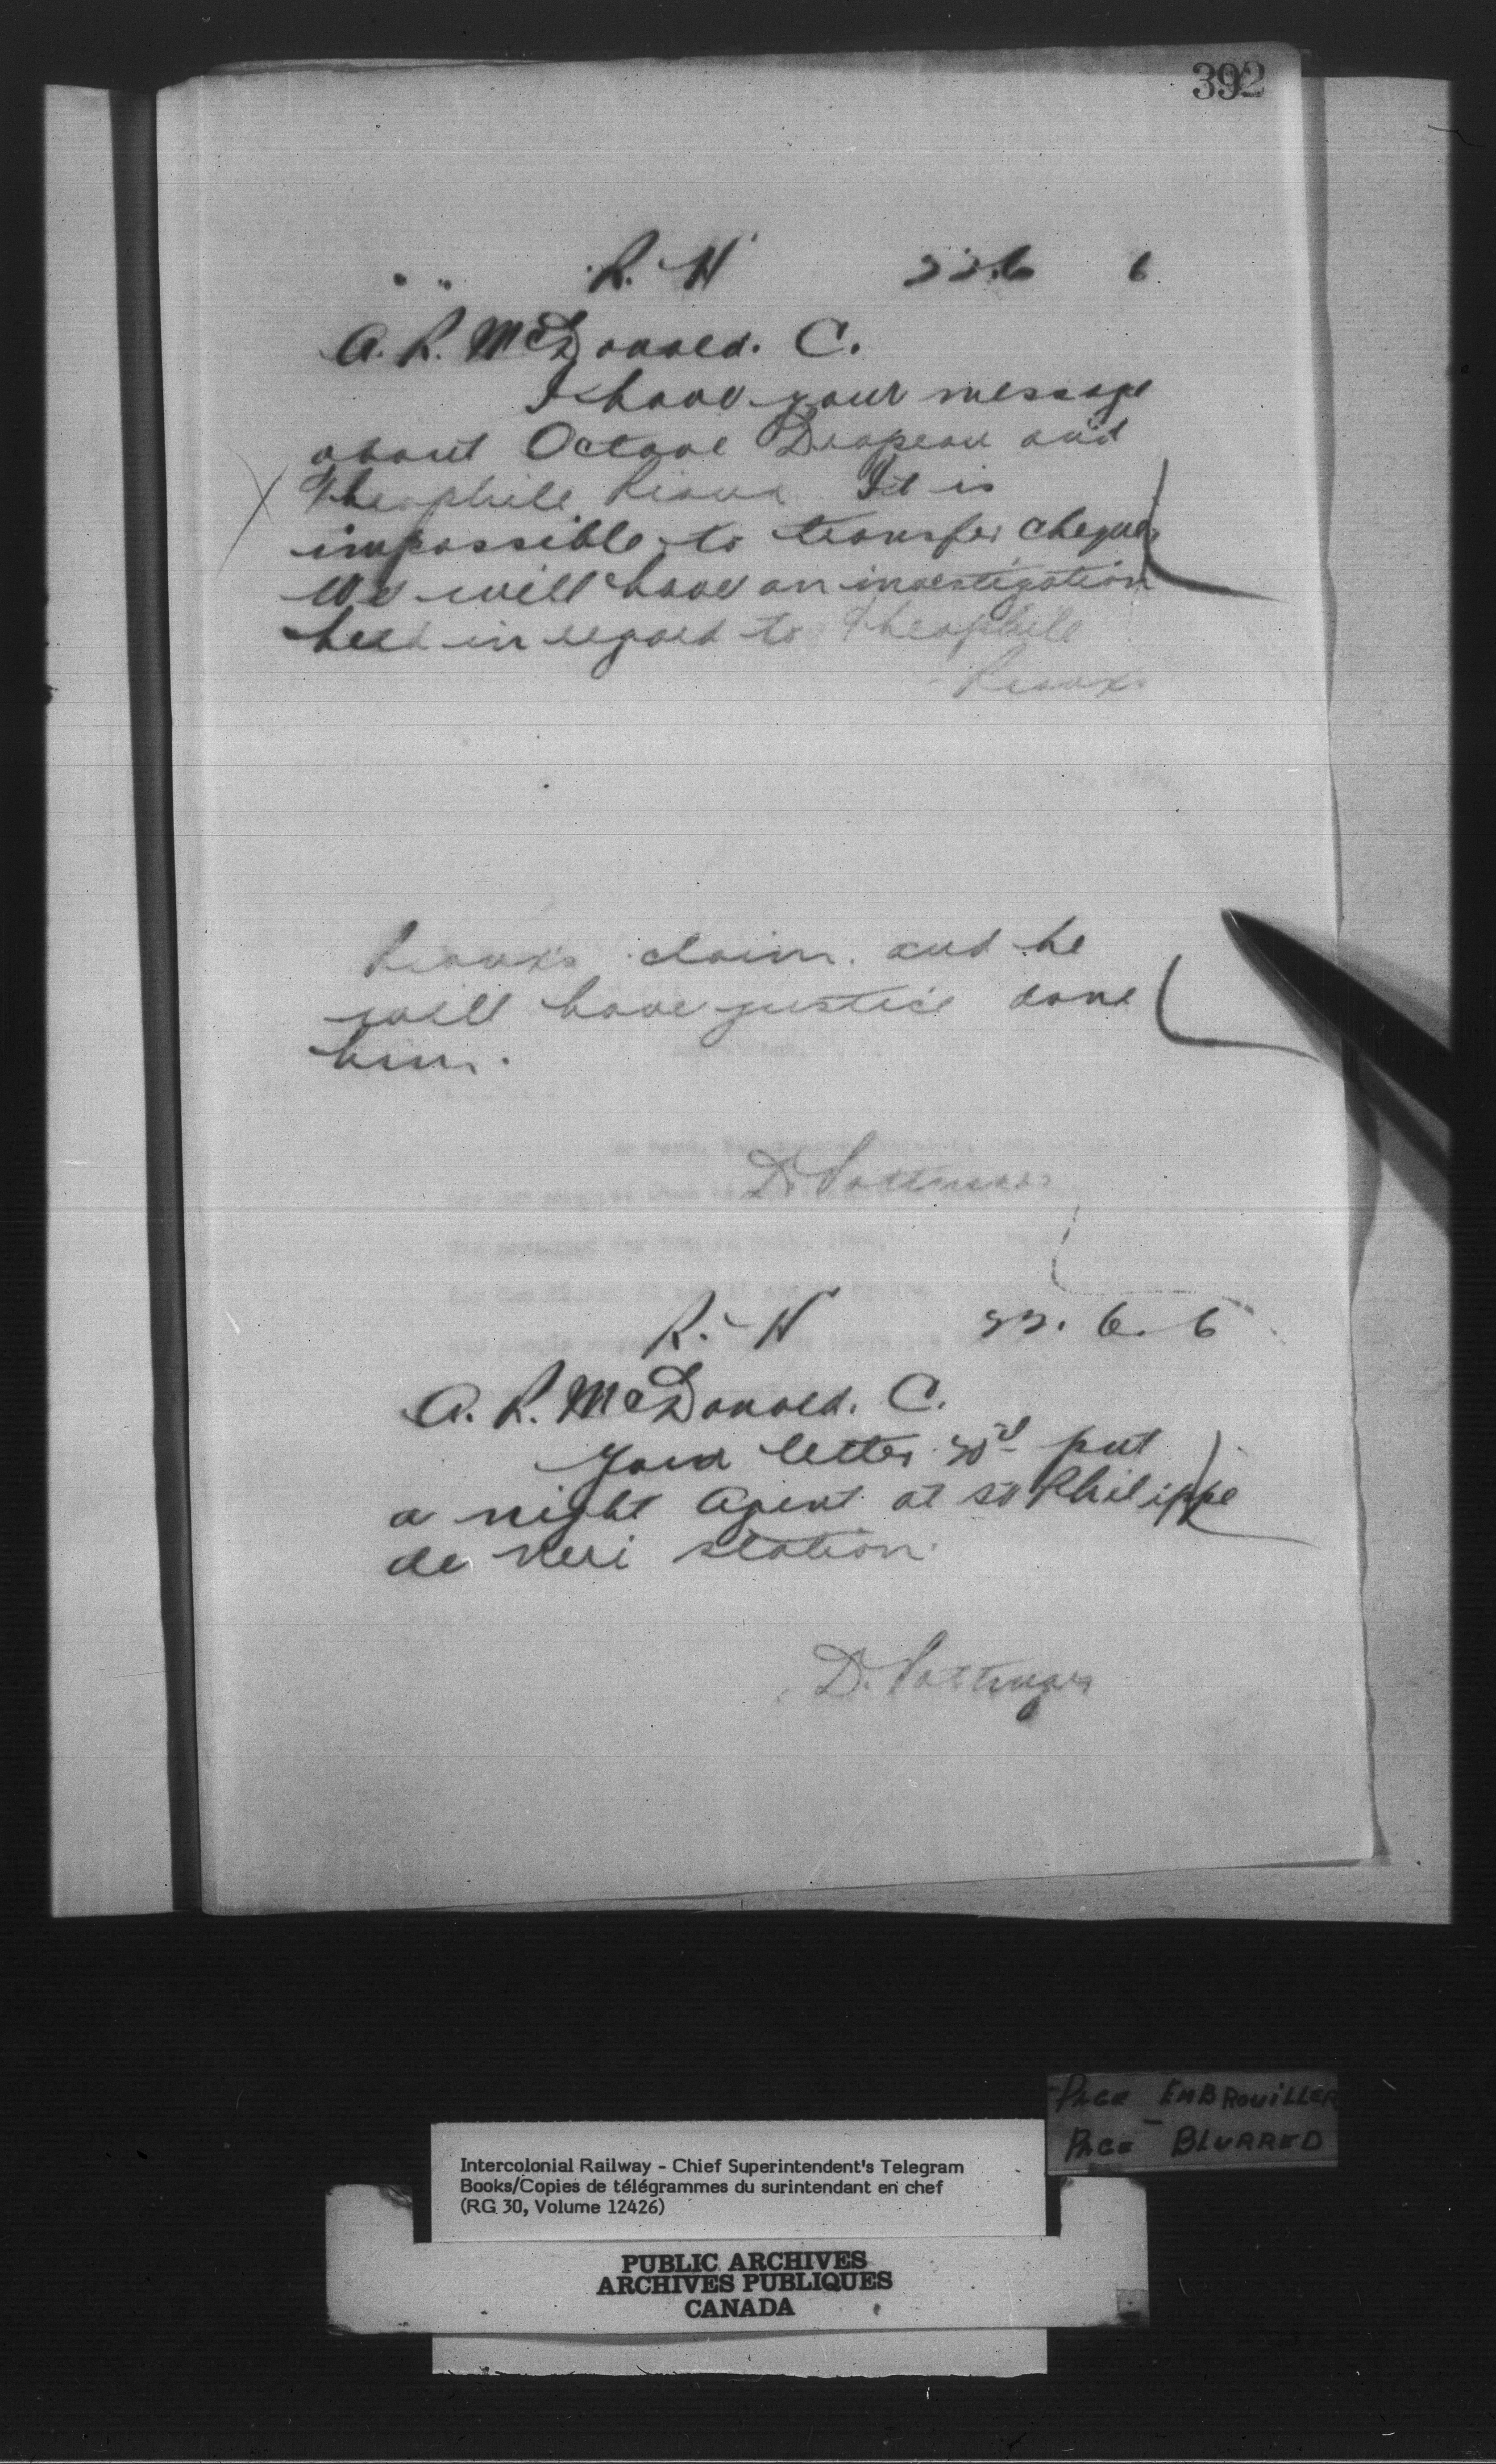 392
R. H 22.6 6
A. R. McDonald. C.
I have your message
about Octave Drapeau and
Theophile Rioux It is
impossible to transfer cheques
We will have an investigation
held in regard to Theophile
Rioux
Rioux's claim. and he
will have justice done
him.
D. Pottinger
R. H 22. 6. 6
A. R. McDonald. C.
Your letter put
a night Agent at St Philippe
de Neri station.
D. Pottinger
PAGE EMBROUILLER
PAGE BLURRED
Intercolonial Railway - Chief Superintendent's Telegram
Books/Copies de télégrammes du surintendant en chef
(RG 30, Volume 12426)
PUBLIC ARCHIVES
ARCHIVES PUBLIQUES
CANADA